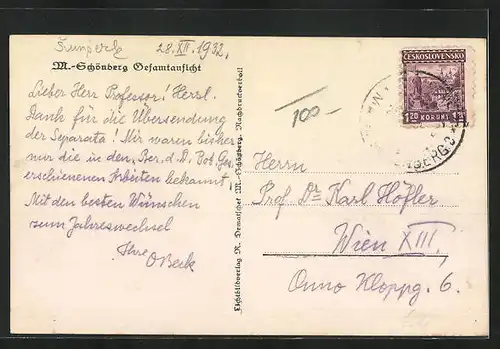 Šumperk 28.XII.1932.
M.-Schönberg Gesamtansicht
Lieber Herr Professor! Herzl.
Dank für die Übersendung
der Separata! Mir waren bisher
nur die in den „Ber. d. D. Bot. Ges.
erschienenen Arbeiten bekannt.
Mit den besten Wünschen
zum Jahreswechsel
Ihre
O Beck
Lichtbildverlag R. Dematschet M.-Schönberg. Nachdruck verboten
100-
ČESKOSLOVENSKO
1.20 KORUNY 1.20
Herrn
Prof. Dr Karl Höfler
Wien XIII.
Onno Kloppg. 6.